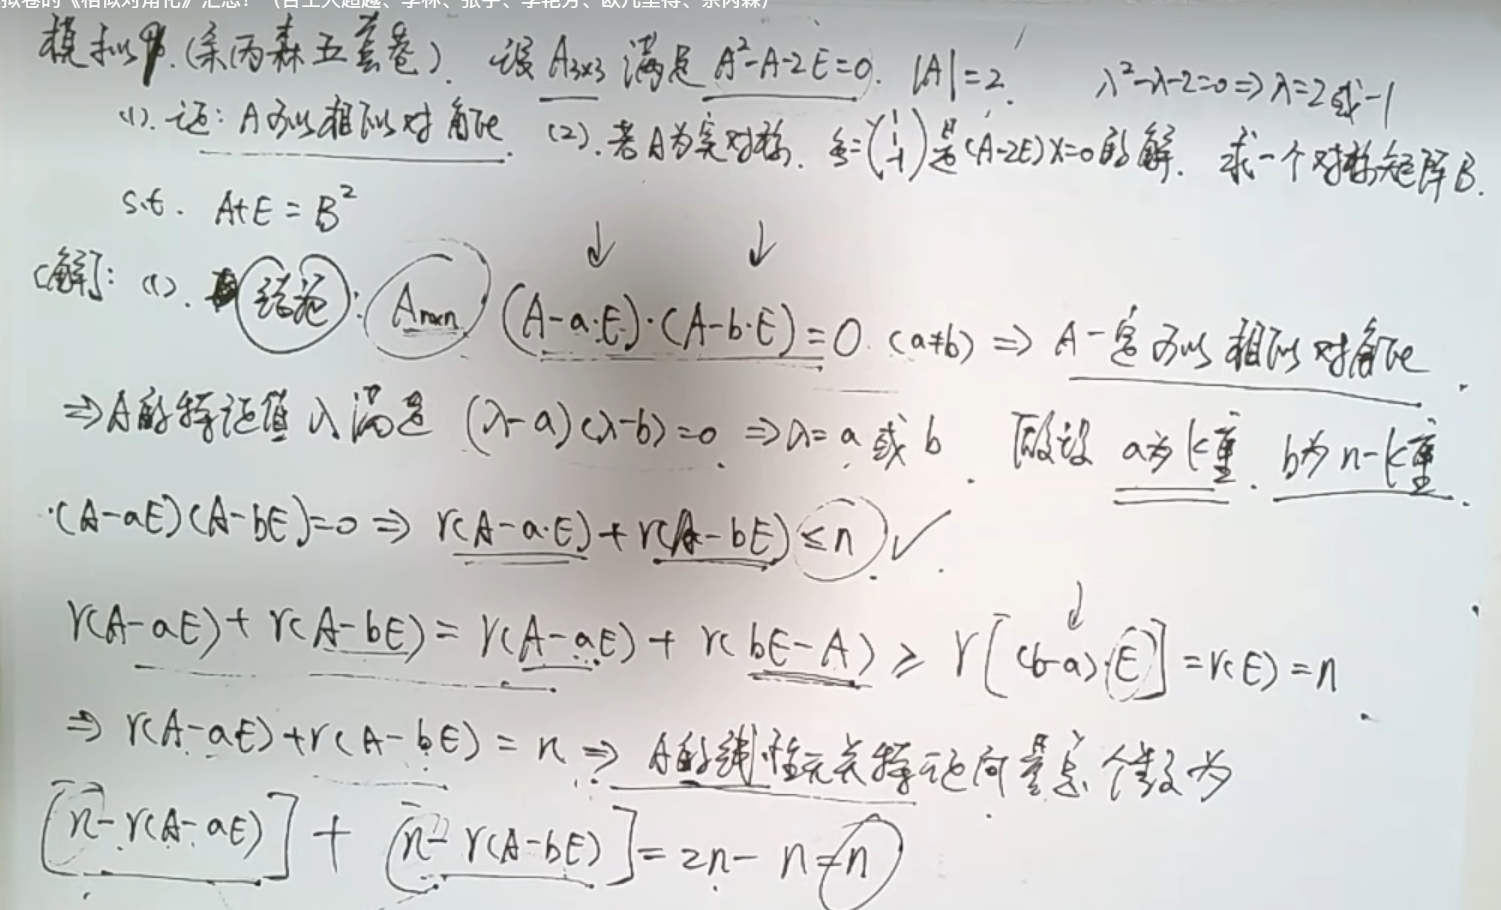 拟卷的《相似对角化》汇总！（合工大超越、李林、张宇、李艳芳、欧几里得、余丙森）
模拟9.(余丙森五套卷). 设 A₃ₓ₃ 满足 A²-A-2E=0. |A|=2. λ²-λ-2=0⇒λ=2或-1
(1). 证: A可以相似对角化. (2). 若A为实对称. 是(A-2E)X=0的解. 求一个对称矩阵B.
s.t. A+E=B²
[解]: (1). 结论: Aₙₓₙ (A-a·E)·(A-b·E)=0. (a≠b) ⇒ A一定可以相似对角化.
⇒A的特征值λ满足 (λ-a)(λ-b)=0 ⇒λ=a或b. 假设 a为k重. b为n-k重.
·(A-aE)(A-bE)=0 ⇒ r(A-a·E)+r(A-bE)≤n ✓.
r(A-aE)+r(A-bE)=r(A-aE)+r(bE-A)≥r[(b-a)·E]=r(E)=n.
⇒ r(A-aE)+r(A-bE)=n ⇒ A的线性无关特征向量总个数为
[n-r(A-aE)]+[n-r(A-bE)]=2n-n=n